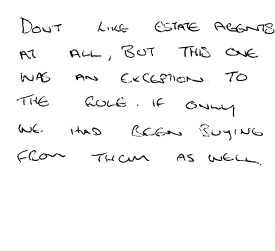 DONT LIKE ESTATE AGENTS
AT ALL, BUT THIS ONE
WAS AN EXCEPTION TO
THE RULE. IF ONLY
WE HAD BEEN BUYING
FROM THEM AS WELL.